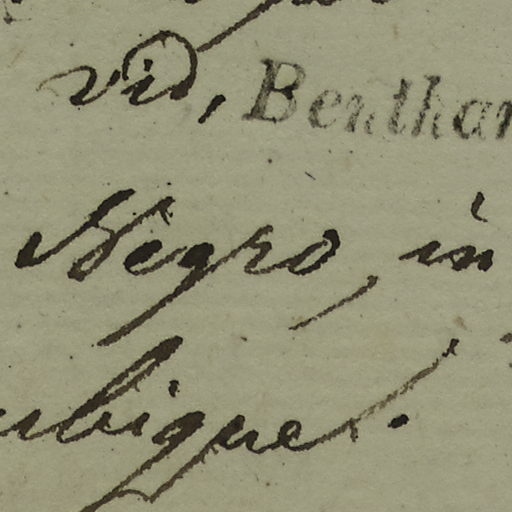 vid, Bentham
Negro, in
ubique.